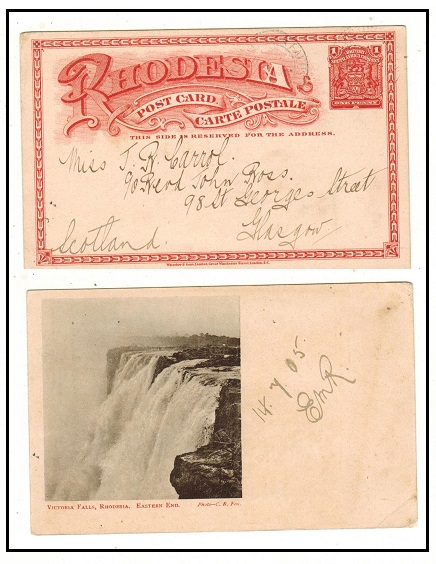 RHODESIA
POST CARD.
CARTE POSTALE
THIS SIDE IS RESERVED FOR THE ADDRESS.
1 1
ONE PENNY
Miss J. R. Carrol.
90 Revd John Ross.
98 St Georges Street
Glasgow
Scotland.
VICTORIA FALLS, RHODESIA, EASTERN END.
Photo—C. R. Fox.
14. 7 05
EMR.